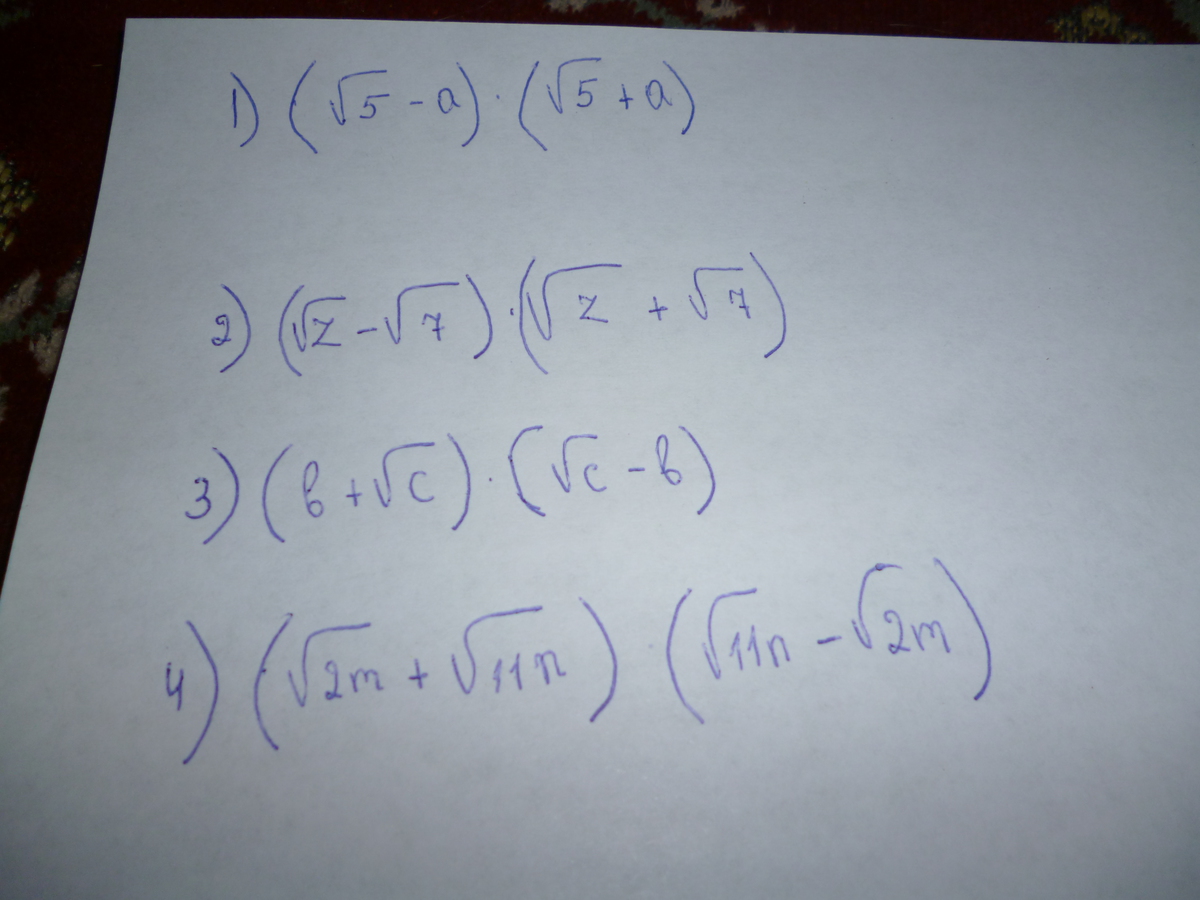 1) (√5 - a) · (√5 + a)
2) (√z - √7) · (√z + √7)
3) (в + √c) · (√c - в)
4) (√2m + √11n) · (√11n - √2m)